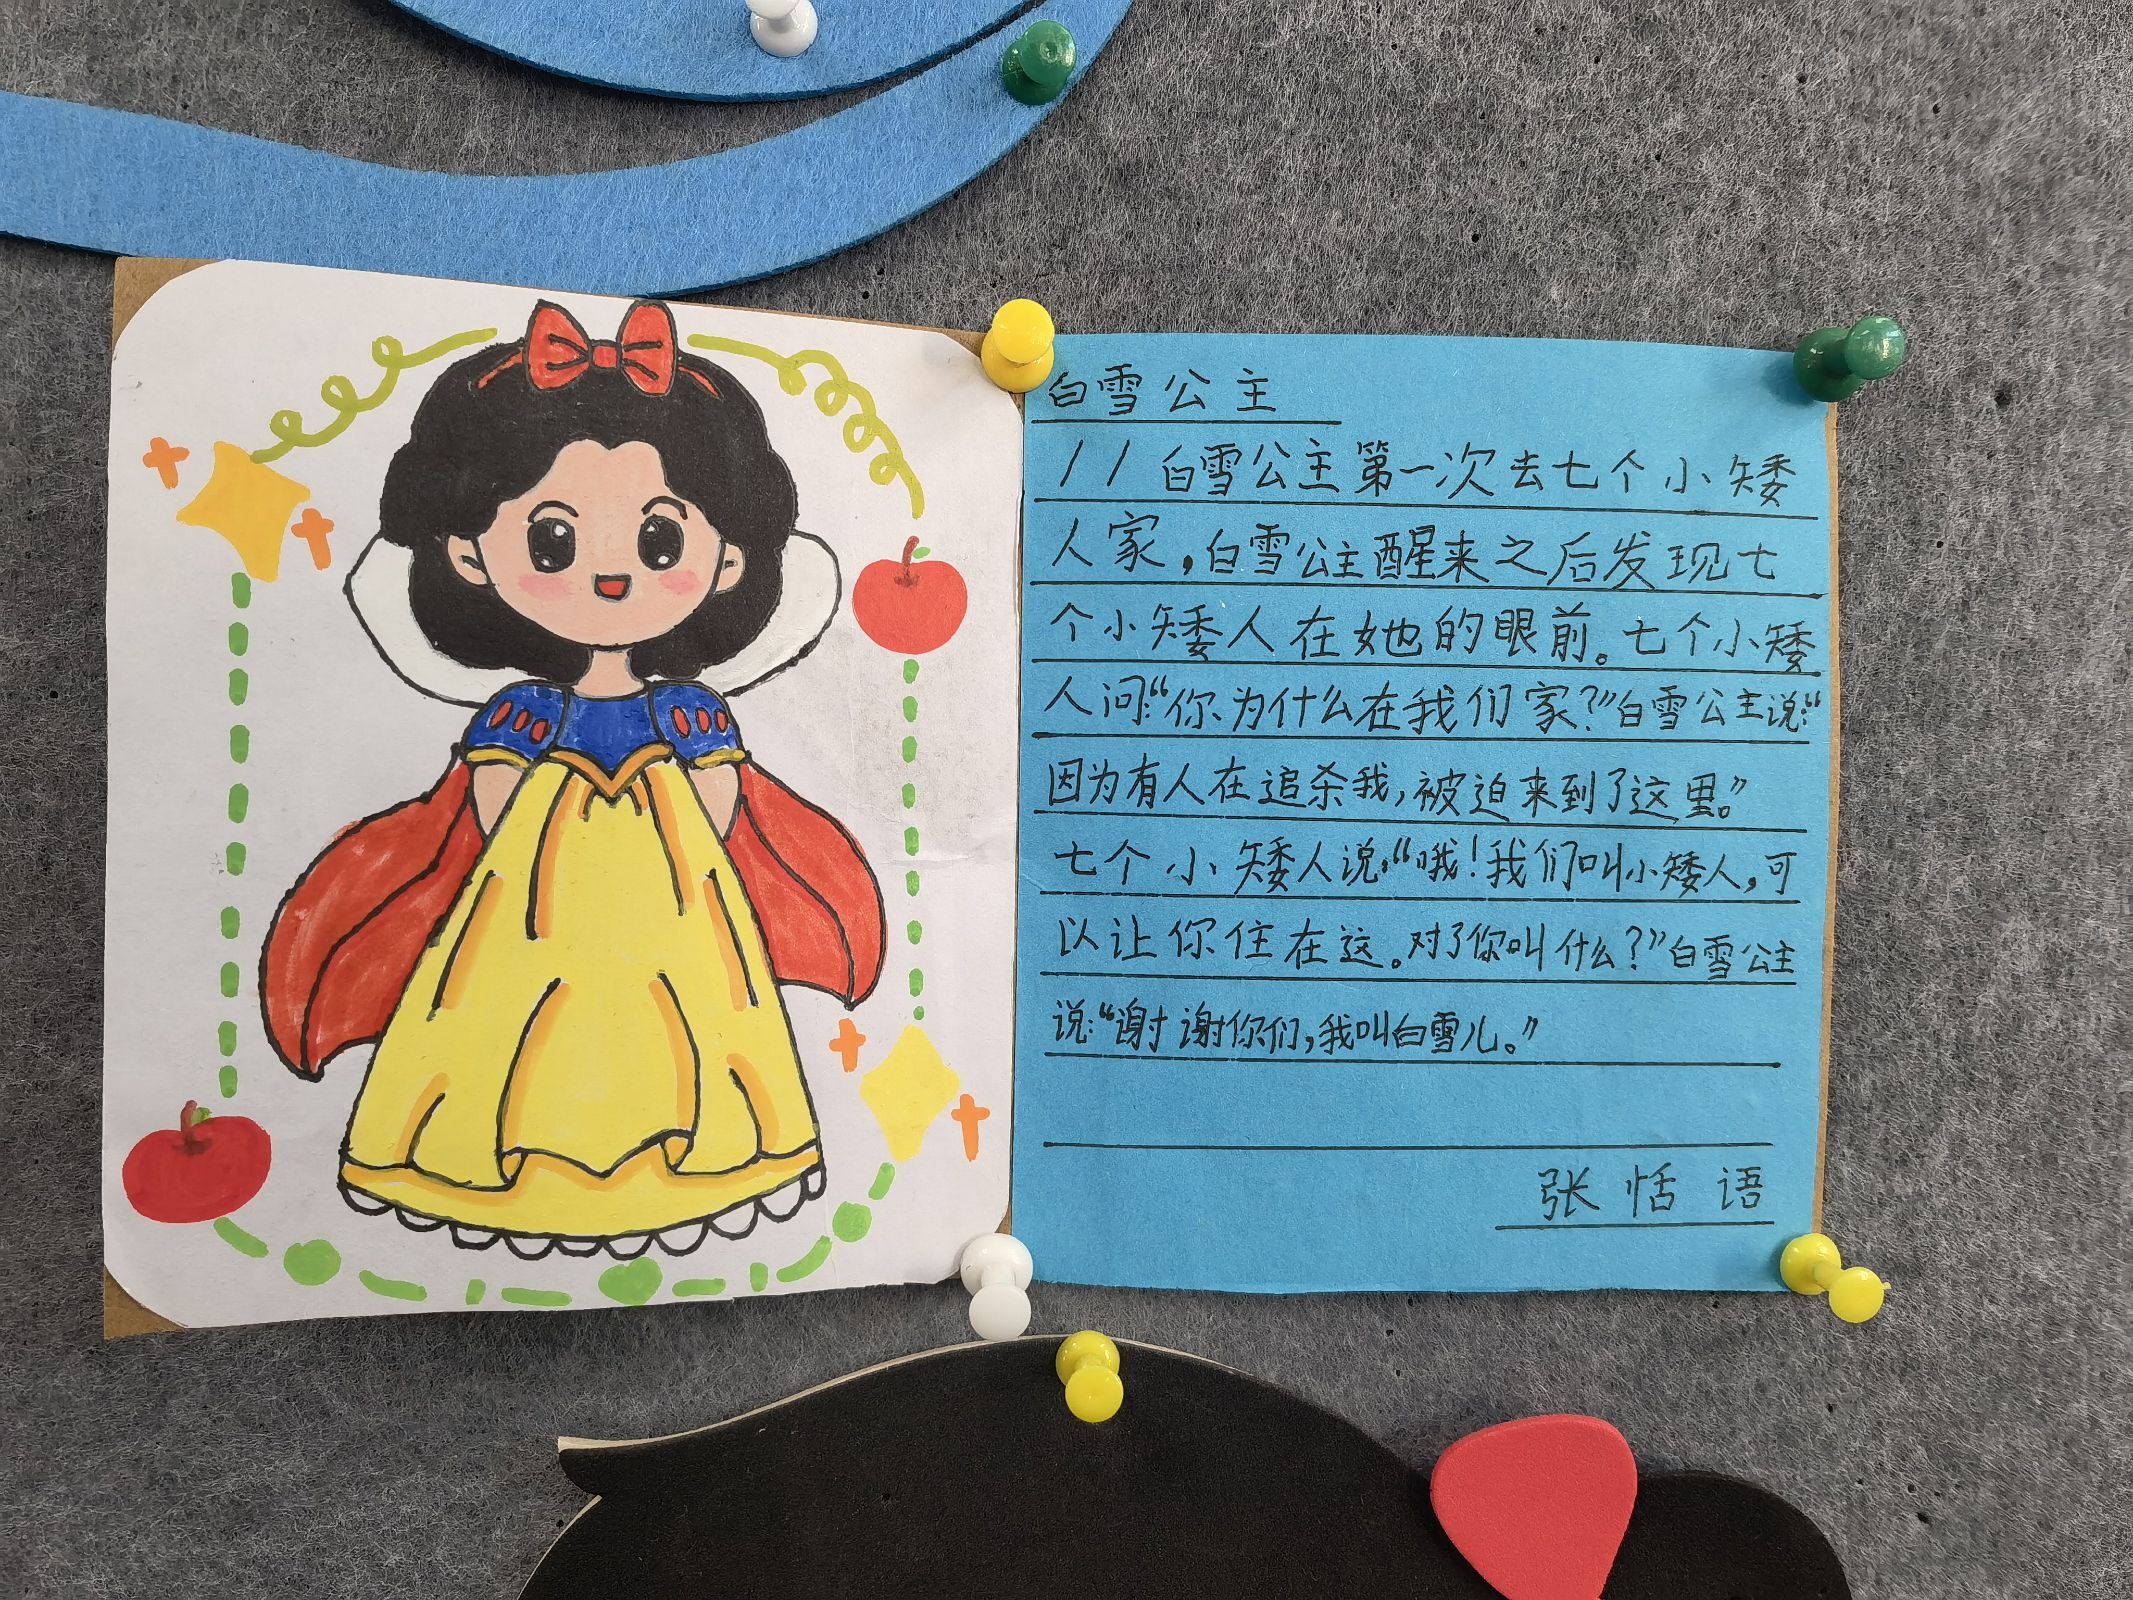 白雪公主
// 白雪公主第一次去七个小矮
人家，白雪公主醒来之后发现七
个小矮人在她的眼前。七个小矮
人问：“你为什么在我们家？”白雪公主说：“
因为有人在追杀我，被迫来到了这里。”
七个小矮人说：“哦！我们叫小矮人，可
以让你住在这。对了你叫什么？”白雪公主
说：“谢谢你们，我叫白雪儿。”
张恬语